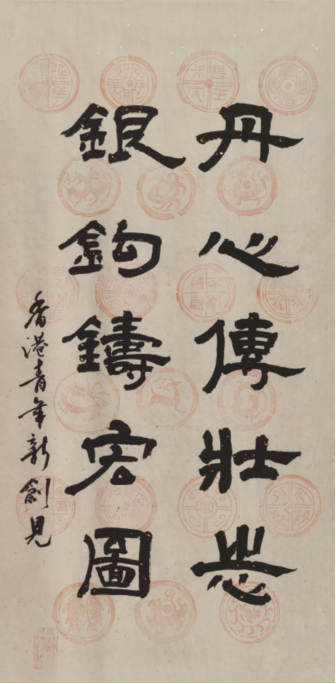 丹心傳壯志
銀鉤鑄宏圖
香港青年新創見